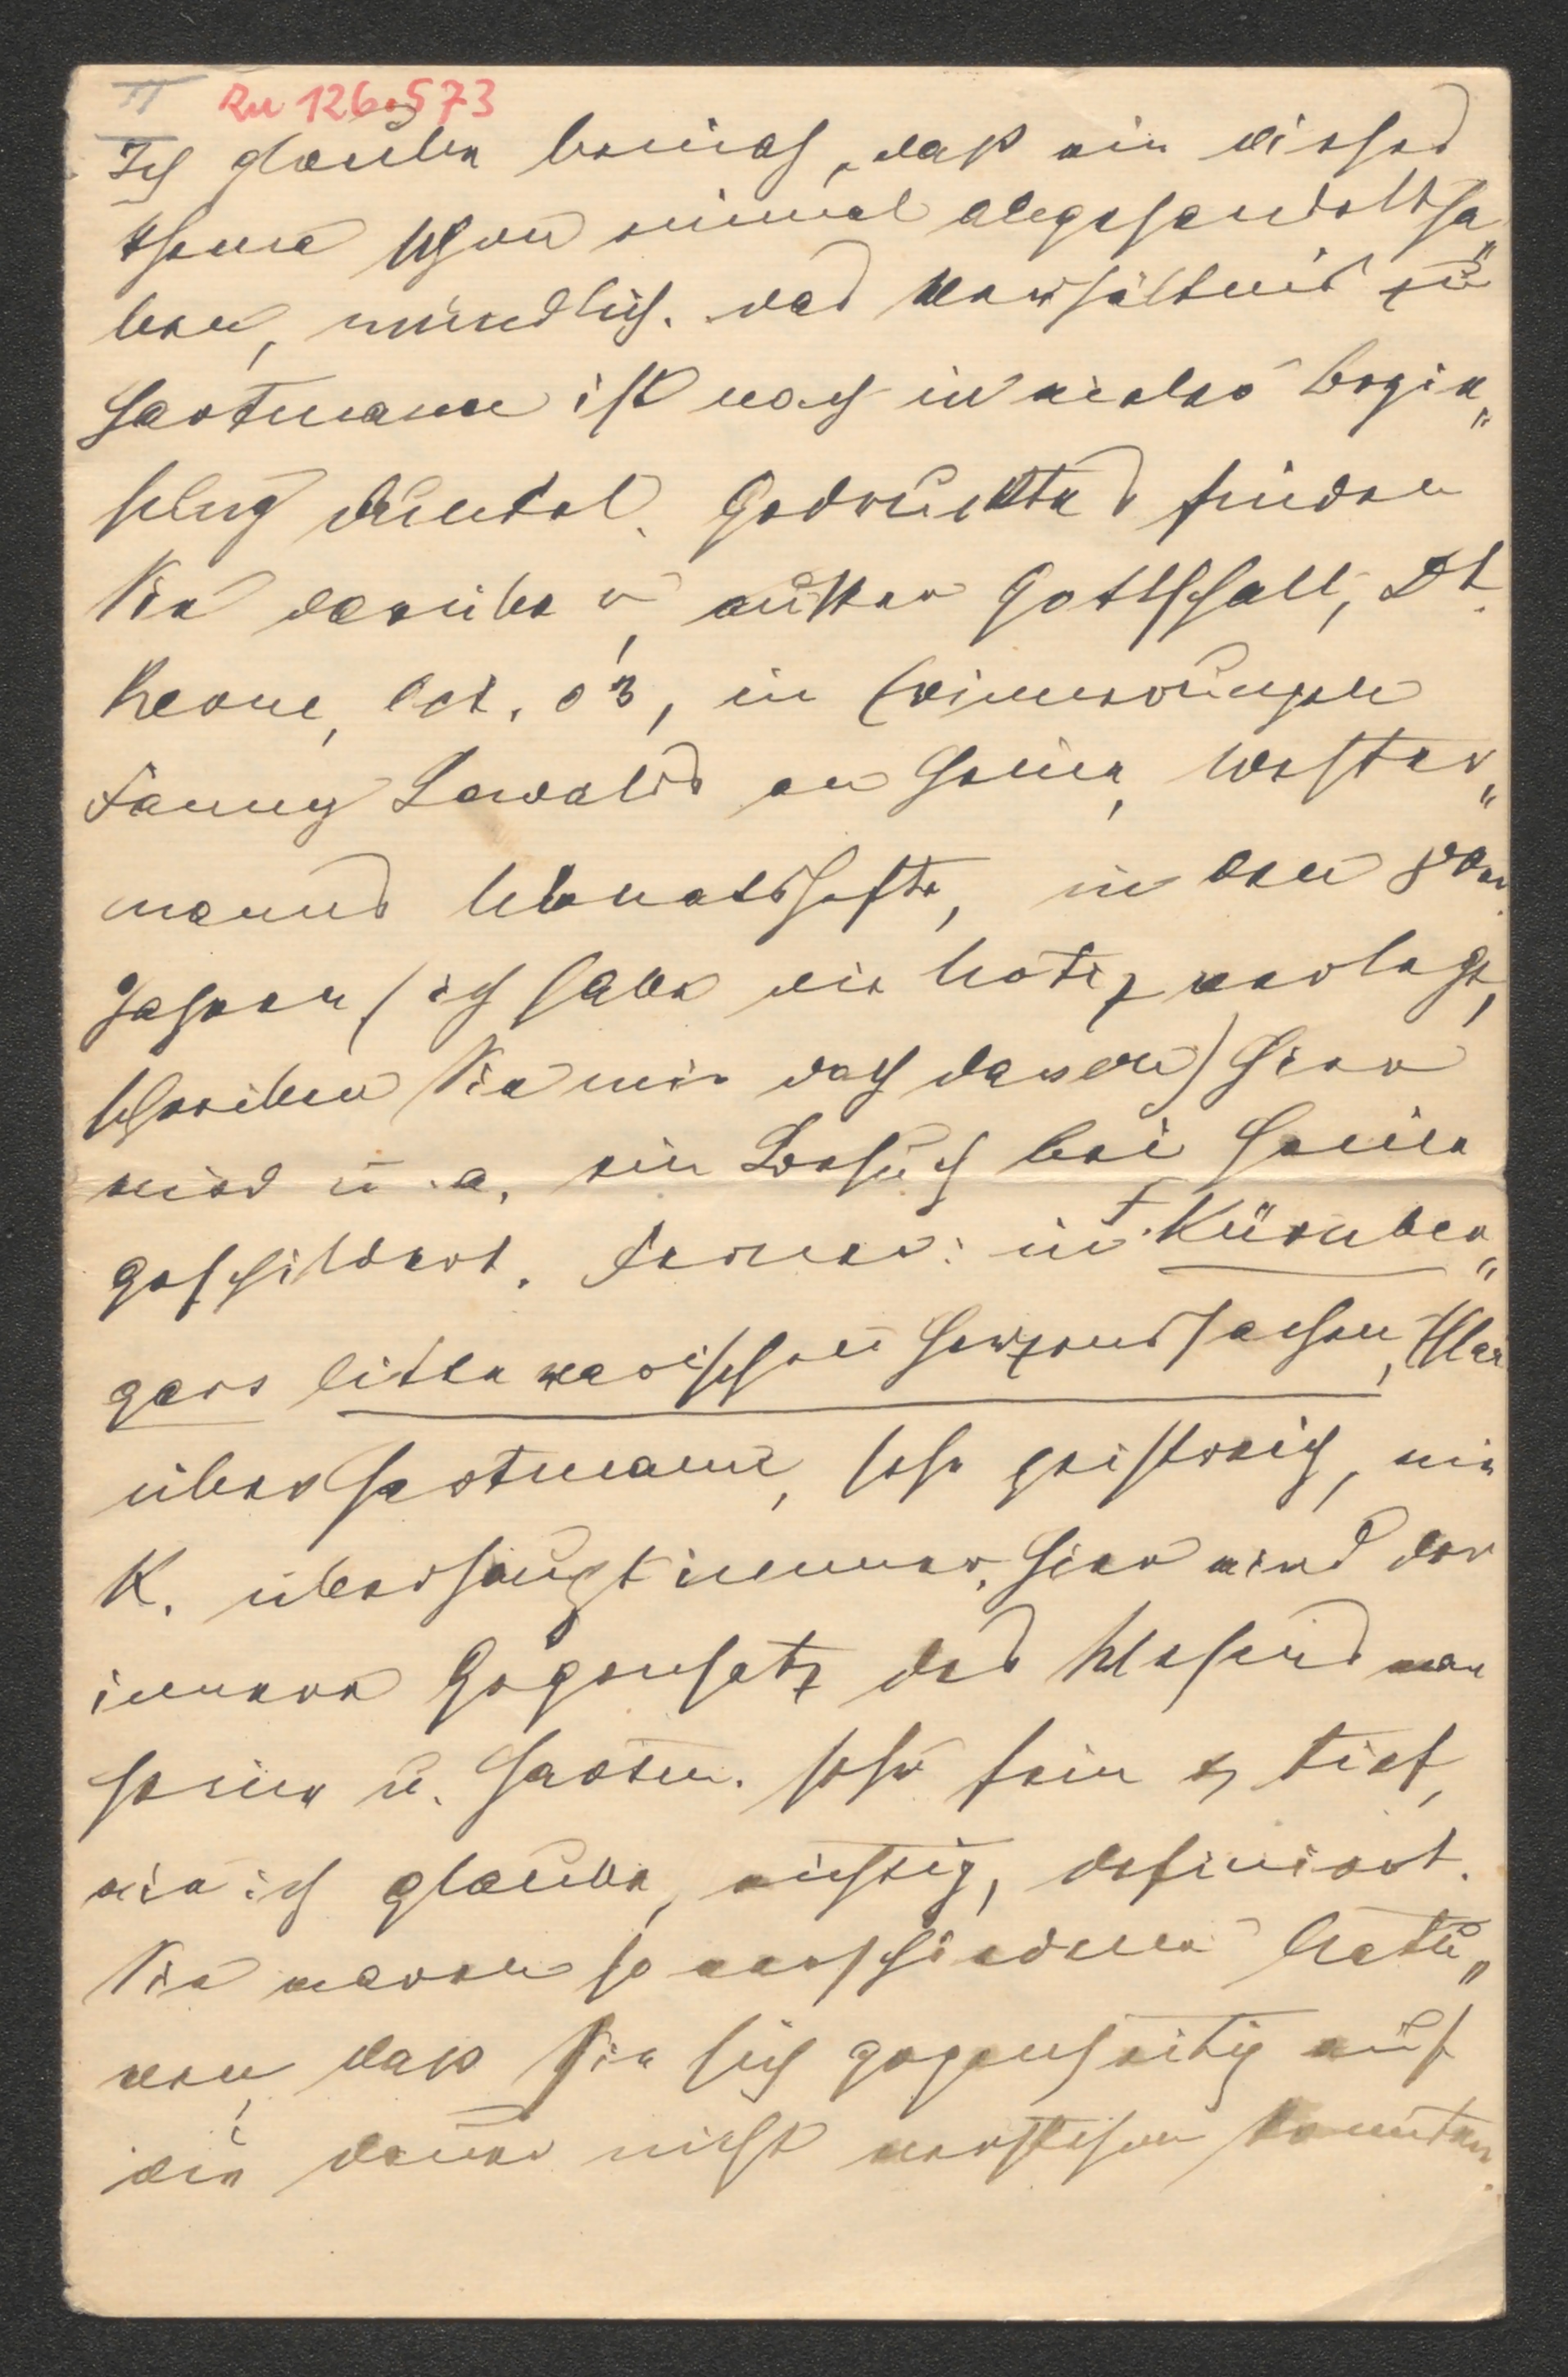 II Zu 126.573
Ich glaube beinah, daß wir dieses
Thema schon einmal abgehandelt ha„
ben, mündlich. Das Verhältnis zu
Hartmann ist noch in vieler Bezie„
hung dunkel. Gedrucktes finden
Sie darüber, außer Gottschall, Dt.
Revue, Oct. 03, in Erinnerungen
Fanny Lewalds an Heine, Wester„
manns Monatshefte, in den 80er
Jahren (ich habe die Notiz verlegt,
schreiben Sie mir doch davon) Hier
wird u. a. ein Besuch bei Heine
geschildert. Ferner: in F. Kürnber„
gers litterarischen Herzenssachen,
über Hartmann, sehr geistreich, wie
K. überhaupt immer. Hier wird der
innere Gegensatz des Wesens von
Heine u. Hartm. sehr fein & tief,
wie ich glaube, richtig, definiert.
Sie waren so verschiedene Natu„
ren, daß Sie sich gegenseitig auf
die Dauer nicht verstehen konnten.